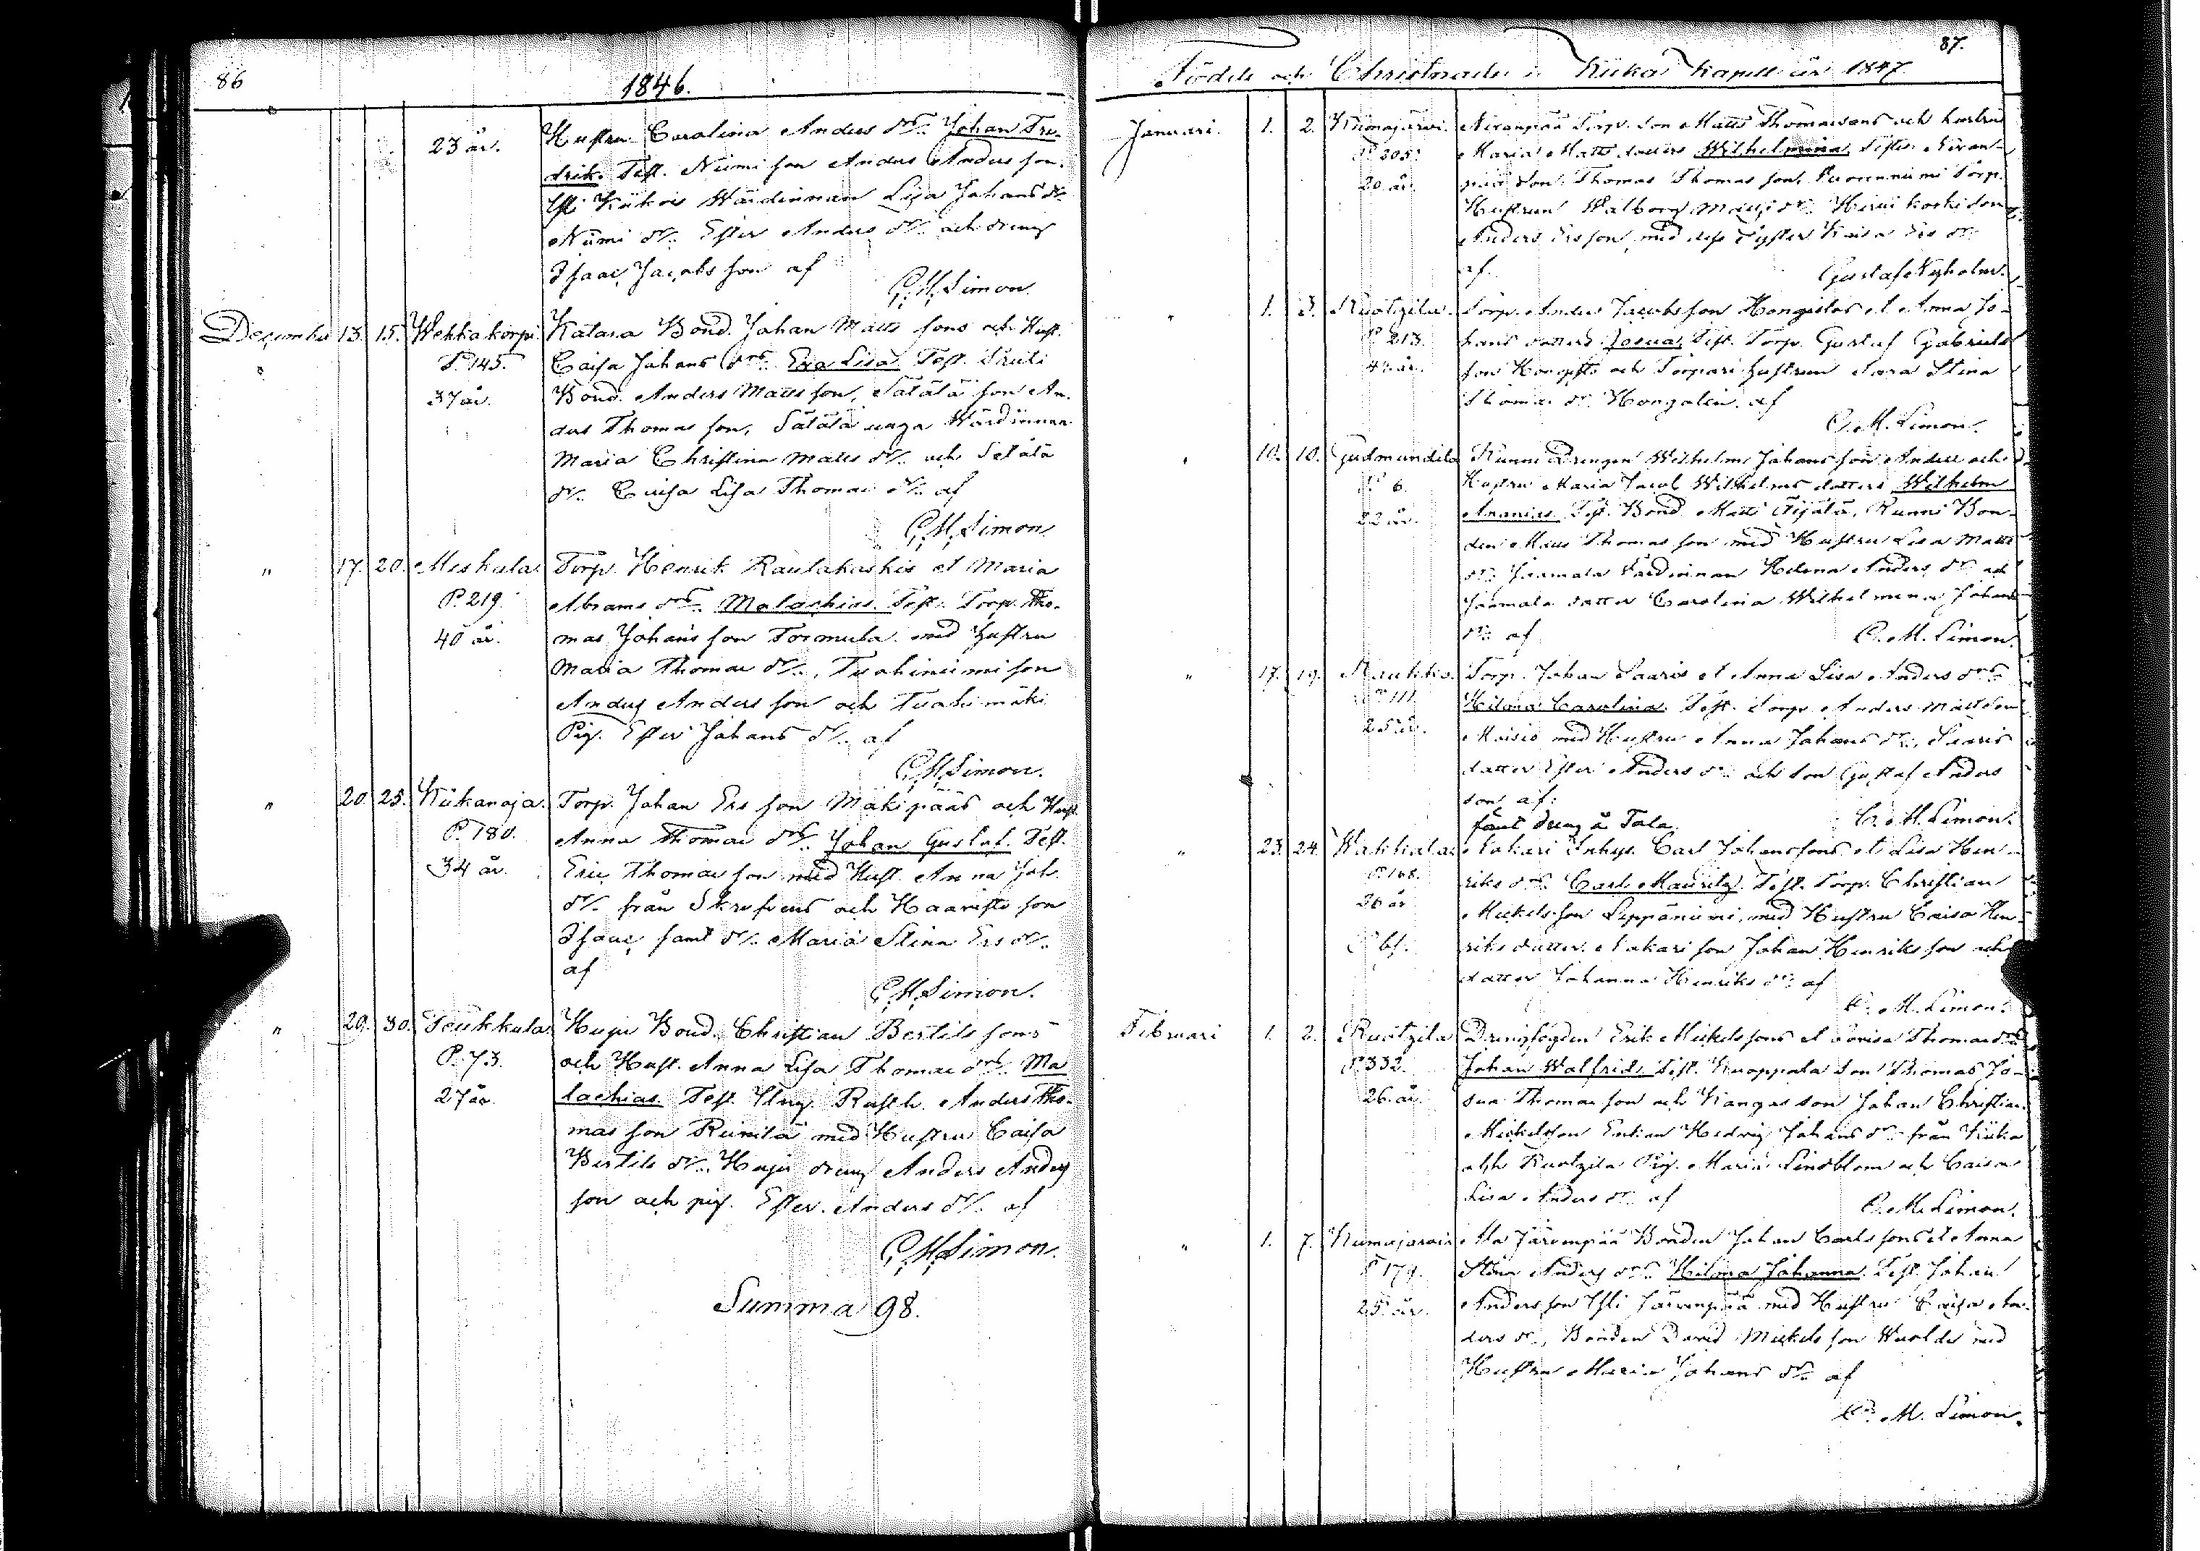 86
1846.
23 år.
Hustru Carolina Anders dr. Johan Fre-
drik. Test. Niemi son Anders Anders son.
Isaac Jacobs son af
C. M. Simon.
December 13. 15. Wehkakorpi
P. 145.
37 år.
Katara Bond. Johan Matts sons och Hust.
Caisa Johans drs. Eva Lisa. Test.
Bond. Anders Matts son, Sätälä son An-
ders Thomas son, Sätälä unga Wärdinnan
Maria Christina Matts dr. och Sätälä
dr. Caisa Lisa Thomae dr. af
C. M. Simon
" 17. 20. Meskala
P. 219.
40 år.
Torp. Henrik Raulakoskis et Maria
Abrams drs. Malachias. Test. Torp. Tho-
mas Johans son Tormula med Hustru
Maria Thomae dr., Tuohiniemi son
Anders Anders son och Tuohimäki
Pig. Ester Johans dr. af
C. M. Simon.
" 20. 25. Kiikanoja.
P. 180.
34 år.
Torp. Johan Ers son Mäkipääs och Hust.
Anna Thomae drs. Johan Gustaf. Test.
Eric Thomae son med Hust. Anna Joh.
dr. från och Haaristo son
Isaac samt dr. Maria Stina Ers dr.
af
C. M. Simon.
" 29. 30. Teukkula
P. 73.
27 år.
Huju Bond. Christian Bertils sons
och Hust. Anna Lisa Thomae drs. Ma
lachias. Test. Anders Tho-
mas son Runilä med Hustru Caisa
Bertils dr. Huju dreng Anders Anders
son och pig. Ester Anders dr. af
C. M. Simon.
Summa 98.
87.
Födde och Christnade i Kiika Kapell år 1847.
Januari. 1. 2. Kiimajärvi.
P. 205.
20 år.
Nivanpää Torp. Son Matts Thomaesons och hustru
Maria Matts datters Wilhelmina. Testes Nivan-
pää Son Thomas Thomas son, Torp.
Hustrun Walborg Matts dr. Hirvikoski son
Anders Ersson, med dess Syster Kaisa Ers dr.
af. Gustaf Nyholm.
" 1. 3. Ruotzila.
P. 213.
Torp. Anders Jacobs son Hongistos et Anna Jo-
hans datters Josua, Test. Torp. Gustaf Gabriels
son och Torpari hustrun Sara Stina
Thomae dr. Hongolin. af
C. M. Simon.
" 10. 10. Gudmundila
P. 6.
22 år.
Kunni Drengen Wilhelm Johans son och
Hustru Maria Jacob Wilhelms datters Wilhelm
Ananias. Test. Bond. Matts Äijälä, Kunni Bon-
den Matts Thomas son med Hustru Lisa Matts
dr. Jaamala Värdinnan Helena Anders dr. och
Jaamala datter Carolina Wilhelmina Johans
dr. af C. M. Simon.
" 17. 19.
P. 111.
25 år.
Torp. Johan Saaris et Anna Lisa Anders drs.
Hilma Carolina. Test. Torp. Anders Matts son
Moisio med Hustru Anna Johans dr., Saaris
datter Ester Anders dr. och son Gustaf Anders
son, af:
samt dreng å Tala. C. M. Simon.
" 23. 24.
P. 108.
26 år
Nakari Inhys. Carl Johanssons et Lisa Hen-
riks drs. Carl Mauritz. Test. Torp. Christian
Mickels son Leppäniemi med Hustru Caisa Hen-
riks datter. Nakari son Johan Henriks son och
datter Johanna Henriks dr. af
C. M. Simon.
Februari 1. 2. Ruotzila
P. 332.
26 år.
Drengfogden Erik Mickelssons et Lovisa Thomae drs.
Johan Walfrid. Test. Knoppala Son Thomas Jo-
sua Thomae son och Kangas son Johan Christian
Mickelsson Enkan Hedvig Johans dr. från Kiika
och Ruotzila Pig. Maria Lindblom och Caisa
Lisa Anders dr. af C. M. Simon.
" 1. 7. Kiimajärvi
P. 179.
25 år.
Ala Järvenpää Bonden Johan Carls sons et Anna
Stina Anders drs. Hilma Johanna. Test. Johan
Anders son Yli Järvenpää med Hustru Caisa An-
ders dr., Bonden David Mickels son Wuolde med
Hustru Maria Johans dr. af
C. M. Simon.